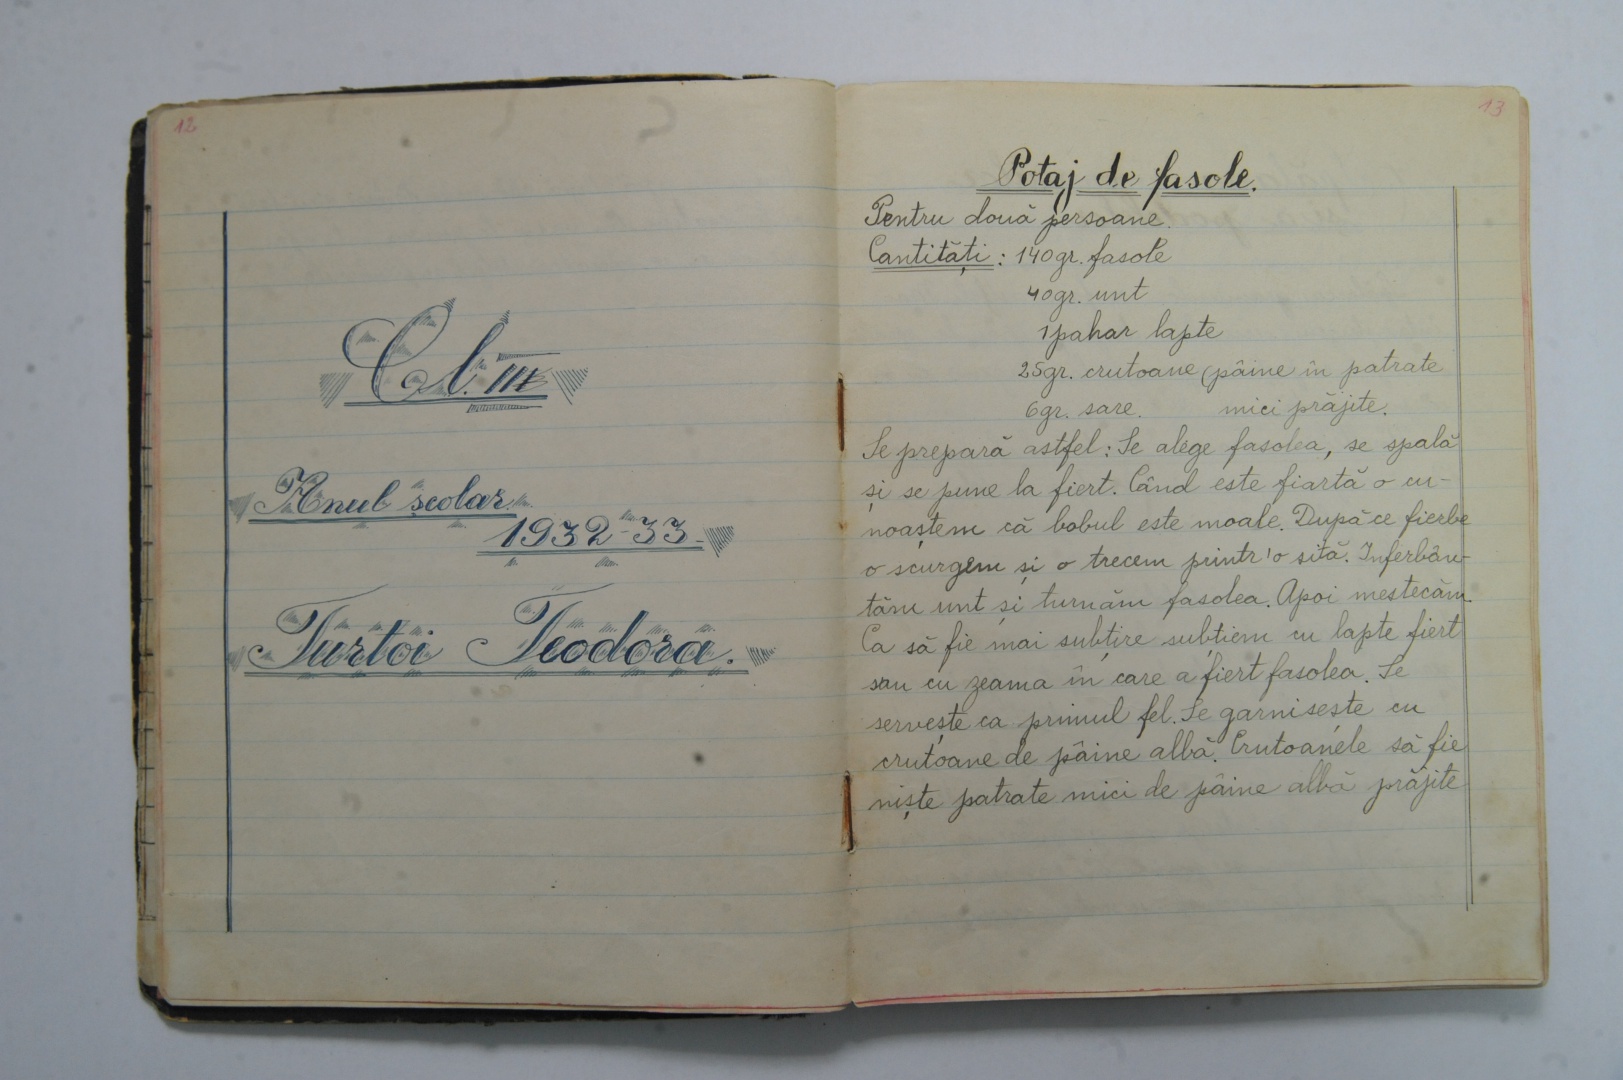 12
Cl. III
Anul școlar
1932-33.
Turtoi Teodora.
13
Potaj de fasole.
Pentru două persoane.
Cantități: 140gr. fasole
40gr. unt
1 pahar lapte
25gr. crutoane (pâine în patrate
6gr. sare. mici prăjite.
Se prepară astfel: Se alege fasolea, se spală
și se pune la fiert. Când este fiartă o cu-
noaștem că bobul este moale. După ce fierbe
o scurgem și o trecem printr'o sită. Inferbân-
tăm unt și turnăm fasolea. Apoi mestecăm.
Ca să fie mai subțire subțiem cu lapte fiert
sau cu zeama în care a fiert fasolea. Se
servește ca primul fel. Se garnisește cu
crutoane de pâine albă. Crutoanele să fie
niște patrate mici de pâine albă prăjite